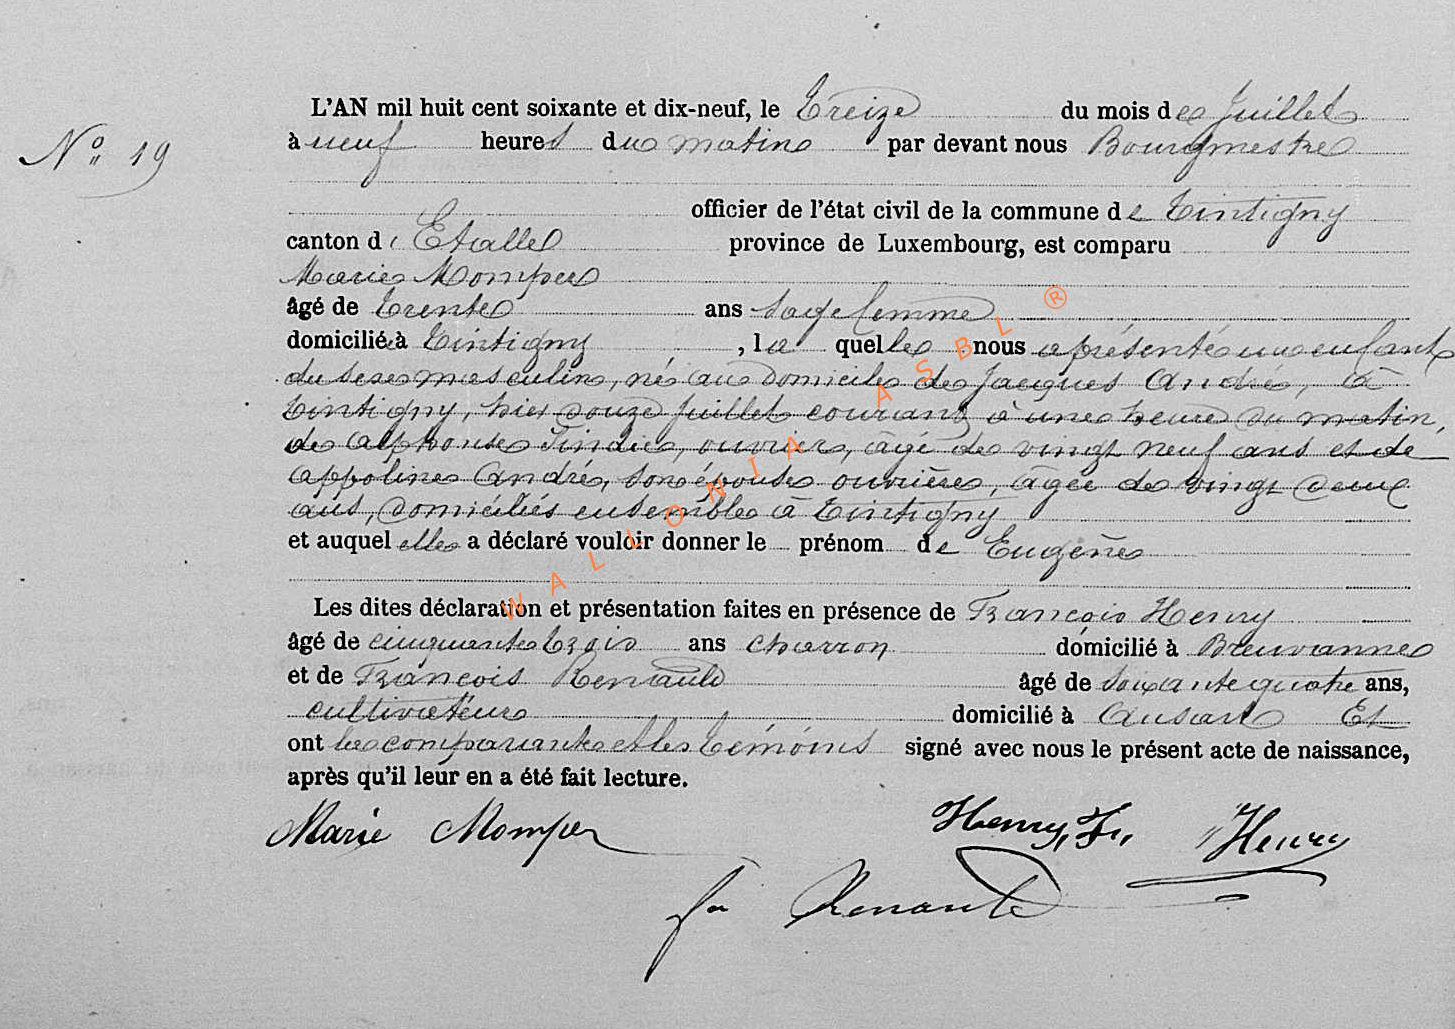 N° 19
L'AN mil huit cent soixante et dix-neuf, le Treize du mois de Juillet
à neuf heures du matin par devant nous Bourgmestre
officier de l'état civil de la commune de Tintigny
canton d'Etalle province de Luxembourg, est comparu
Marie Momper
âgé de trente ans Sage femme
domiciliée à Tintigny, laquelle nous a présenté un enfant
du sexe masculin, né au domicile de Jacques André, à
Tintigny, hier douze juillet courant à une heure du matin,
de Alphonse, ouvrier, âgé de vingt neuf ans et de
appoline André, son épouse ouvrière, âgée de vingt deux
ans, domiciliés ensemble à Tintigny
et auquel elle a déclaré vouloir donner le prénom de Eugène
Les dites déclaration et présentation faites en présence de François Henry
âgé de cinquante trois ans charron domicilié à Breuvanne
et de François Renauld âgé de soixante quatre ans,
cultivateur domicilié à Ansart Et
ont les comparante et les témoins signé avec nous le présent acte de naissance,
après qu'il leur en a été fait lecture.
Marie Momper Henry, F. Henry
Renauld
WALLONIA ASBL ®